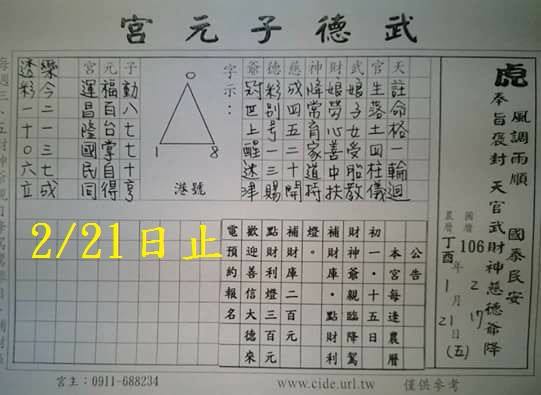 武德子元宮
虎
風調雨順　國泰民安
奉旨褒封　天官武財神慈德爺降
國曆106年2月17日(五)
農曆丁酉1月21日
天註命格一輪迴
官生落土四柱儀
武娘子女受胎教
財娘勞心善中扶
神降常育家道時
慈成四五二十開
德彩別号一三賜
爺冠世上醒迷津
字示：
1 8
港號
子勤八七七十亨
元福百台掌自得
宮運昌隆國民同
樂今二一三七成
透彩一十〇六立
公告
本宮每逢農曆
初一、十五日
財神爺親臨降駕
補財庫、點財利
燈。
補財庫二百元
點財利燈三百元
歡迎善信大德來
電預約報名
2/21日止
宮主：0911-688234
www.cide.url.tw
僅供參考